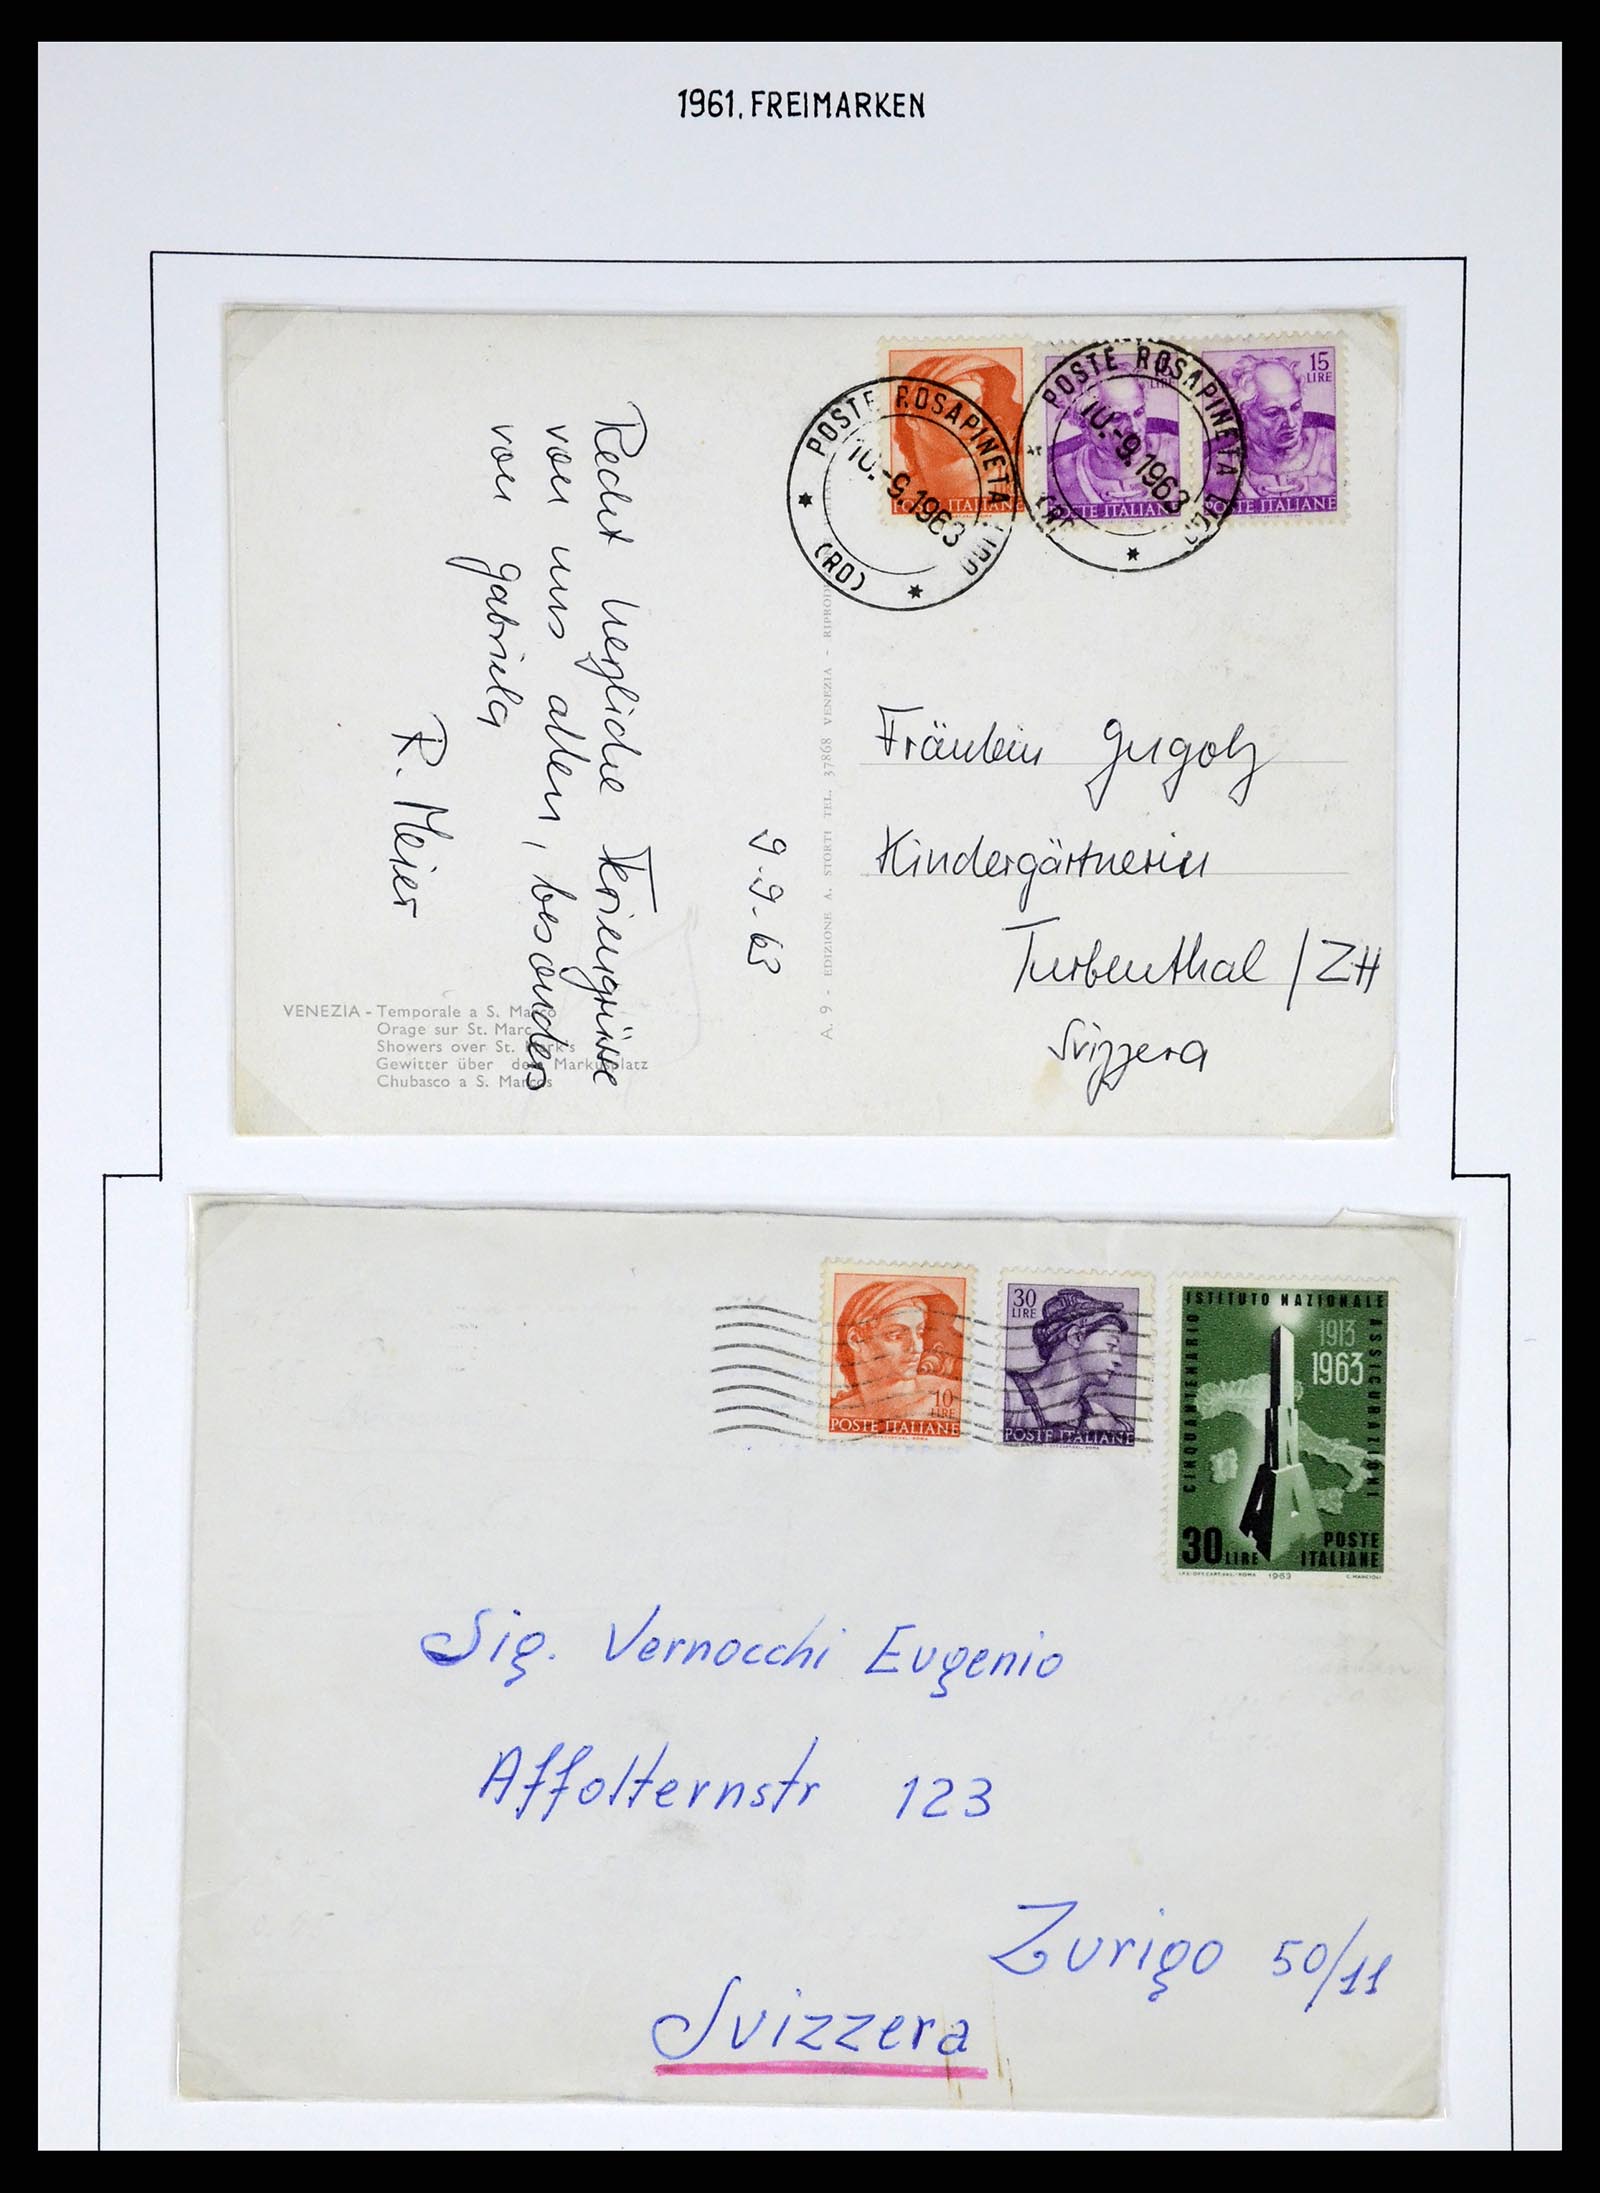 1961. FREIMARKEN
POSTE ROSAPINETA
10.-9.1963
(RO)
POSTE ITALIANE
POSTE ROSAPINETA
10.-9.1963
15
LIRE
POSTE ITALIANE
POSTE ITALIANE
Recht herzliche Feriengrüsse
von uns allen, besonders
von Gabriela
R. Meier
9.-9.-63
A. 9 - EDIZIONE A. STORTI TEL. 37868 VENEZIA - RIPROD
Fräulein Gugolz
Kindergärtnerin
Turbenthal / ZH
Svizzera
VENEZIA - Temporale a S. Marco
Orage sur St. Marc
Showers over St. Mark's
Gewitter über dem Markusplatz
Chubasco a S. Marcos
10
LIRE
POSTE ITALIANE
30
LIRE
POSTE ITALIANE
ISTITUTO NAZIONALE
ASSICURAZIONI
CINQUANTENARIO
1913
1963
30 LIRE
POSTE
ITALIANE
I.P.S.-OFF.CARTE VAL.-ROMA 1963 C. MANCIOLI
Sig. Vernocchi Eugenio
Affolternstr 123
Zurigo 50/11
Svizzera